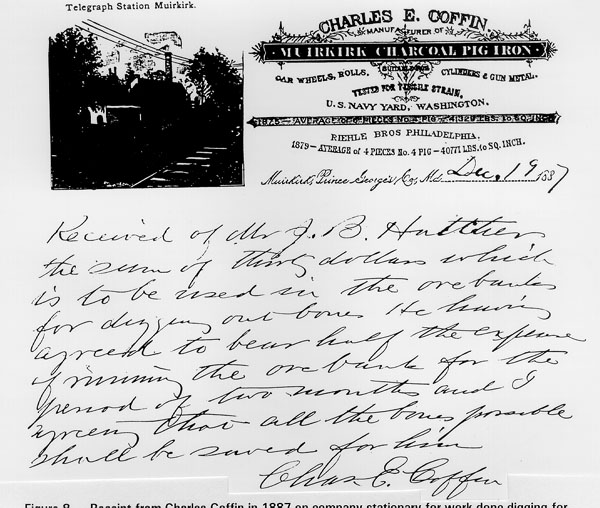 Telegraph Station Muirkirk.
CHARLES E. COFFIN,
MANUFACTURER OF
MUIRKIRK CHARCOAL PIG IRON
SUITABLE FOR
CAR WHEELS, ROLLS, CYLINDERS & GUN METAL.
TESTED FOR TENSILE STRAIN,
U.S. NAVY YARD, WASHINGTON.
1875 – AVERAGE OF PIECES No. 4 PIG – LBS. TO SQ. INCH.
RIEHLE BROS PHILADELPHIA.
1879 – AVERAGE of 4 PIECES No. 4 PIG – 40771 LBS. to SQ. INCH.
Muirkirk, Prince George's Co., Md. Dec. 19 1887
Received of Mr J. B. Hatcher
the sum of thirty dollars which
is to be used in the ore banks
for digging out bones He having
agreed to bear half the expense
of running the ore bank for the
period of two months and I
agreeing that all the bones possible
shall be saved for him
Chas. E. Coffin
Figure 9. Receipt from Charles Coffin in 1887 on company stationary for work done digging for